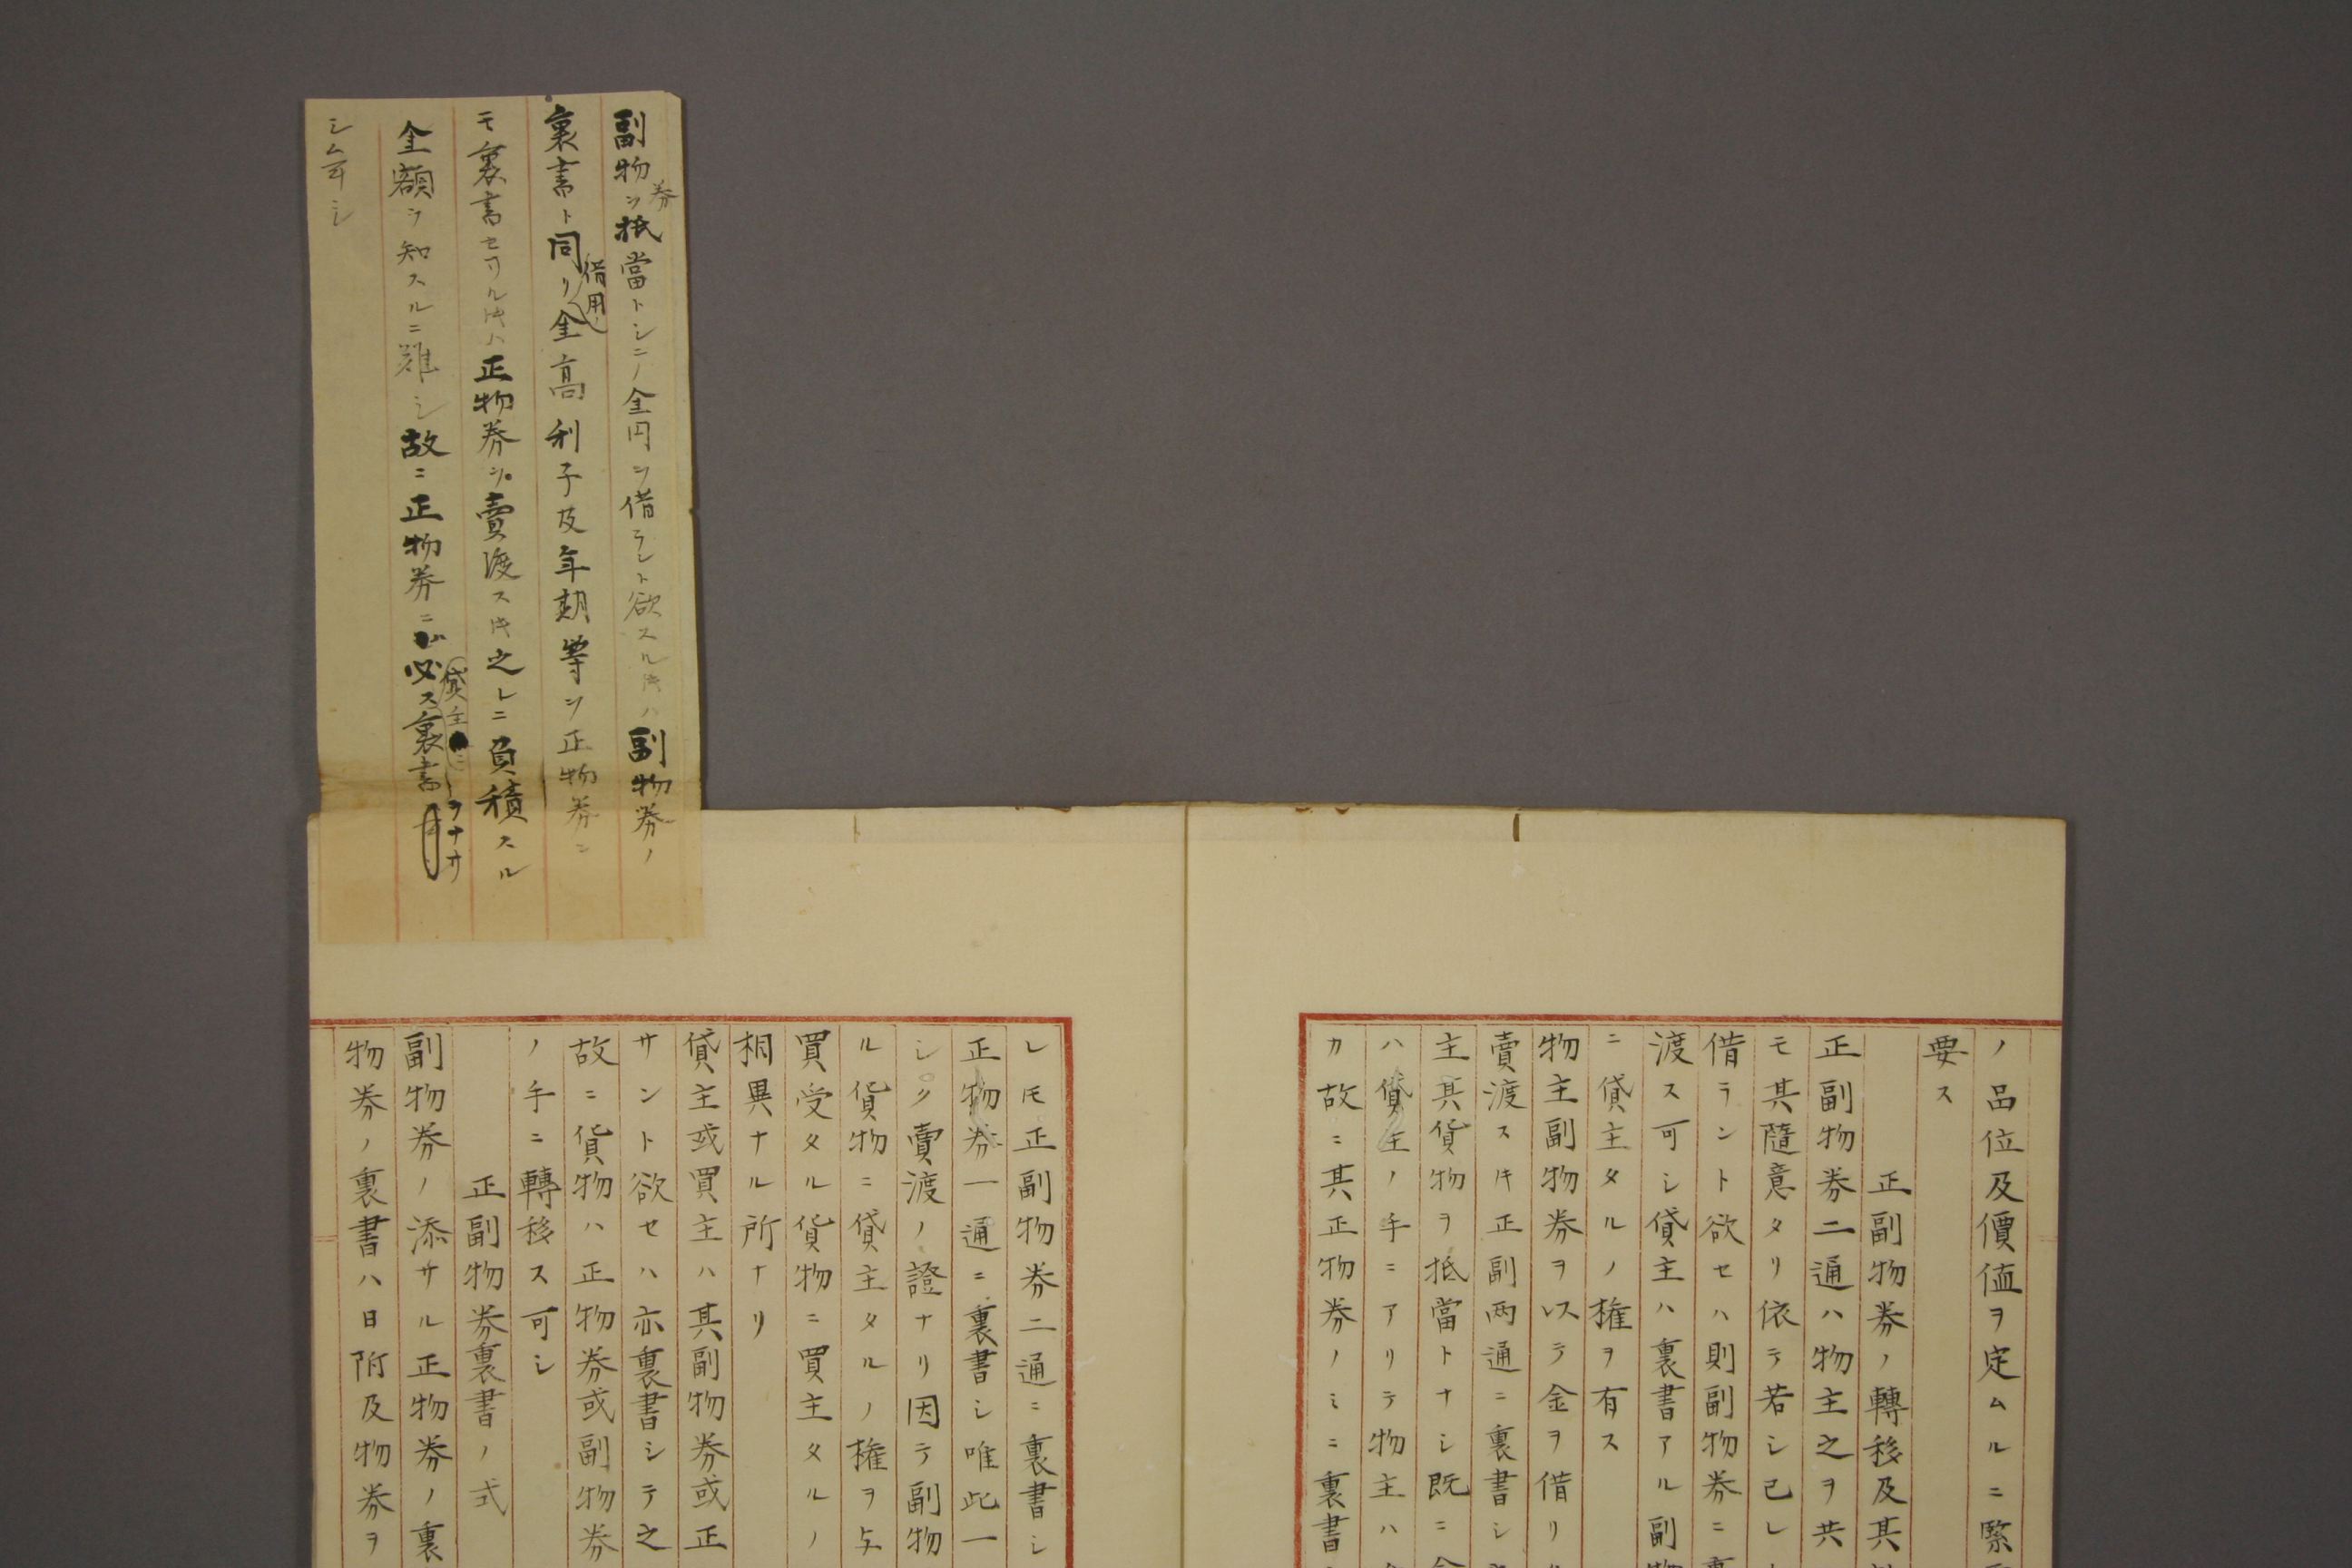 副物券ヲ抵當トシ金円ヲ借ラント欲スル𪜈ハ副物券ノ
裏書ト同ク借用金高利子及年期等ヲ正物券ニ
モ裏書セサル片ハ正物券ヲ賣渡ス片之レニ負積スル
金額ヲ知スルニ難シ故ニ正物券ニ必ス貸主裏書ヲナサ
シム可シ
ノ品位及價値ヲ定ムルニ緊
要ス
正副物券ノ轉移及其
正副物券二通ハ物主之ヲ共
モ其隨意タリ依テ若シ已レ
借ラント欲セハ則副物券ニ裏
渡ス可シ貸主ハ裏書アル副物
ニ貸主タルノ権ヲ有ス
物主副物券ヲ以テ金ヲ借リ
賣渡ス片正副両通ニ裏書シ
主其貨物ヲ抵當トナシ既ニ金
ハ貸主ノ手ニアリテ物主ハ
カ故ニ其正物券ノミニ裏書
レ𪜈正副物券二通ニ裏書シ
正物券一通ニ裏書シ唯此一
シク賣渡ノ證ナリ因テ副物
ル貨物ニ貸主タルノ権ヲ与
買受タル貨物ニ買主タルノ
相異ナル所ナリ
貸主或買主ハ其副物券或正
サント欲セハ亦裏書シテ之
故ニ貨物ハ正物券或副物券
ノ手ニ轉移ス可シ
正副物券裏書ノ式
副物券ノ添サル正物券ノ裏
物券ノ裏書ハ日附及物券ヲ